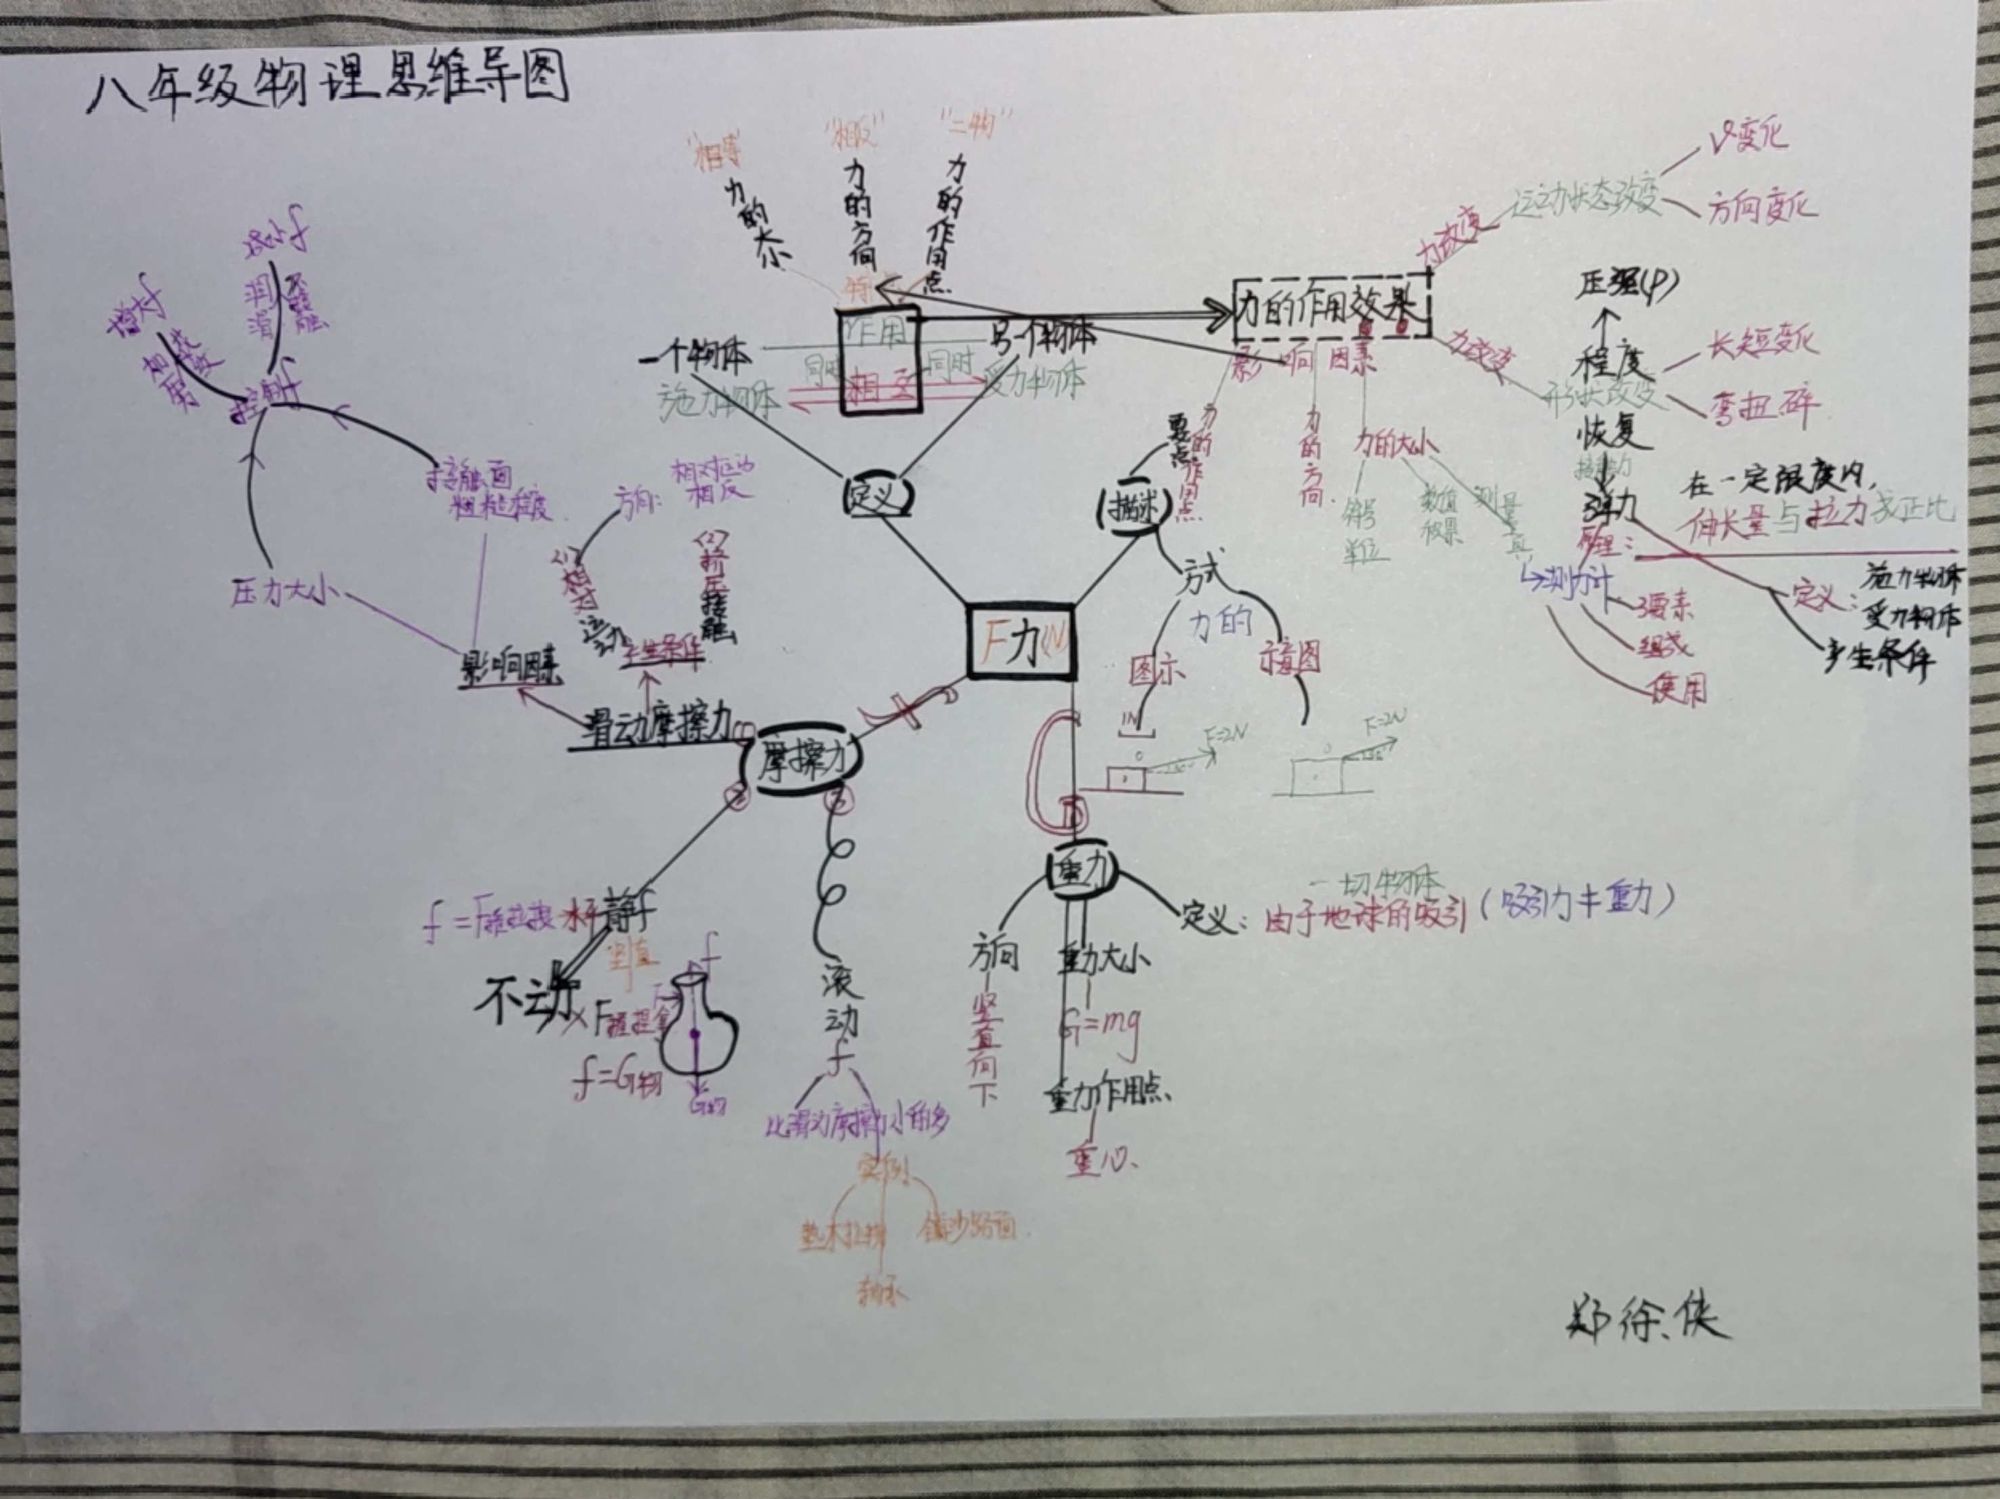 八年级物理思维导图
"相等"
力的大小
"相反"
力的方向
"二物"
力的作用点
作用
相互
同时
同时
一个物体
施力物体
另一个物体
受力物体
定义
力的作用效果
影响因素
力的作用点
力的方向.
力的大小
符号
单位
数值
效果
测量
力改变
运动状态改变
V变化
方向变化
力改变
形状改变
长短变化
弯扭碎
压强(P)
程度
恢复
弹力
原理:
在一定限度内,
伸长量与拉力成正比
测力计
3要素
组成
使用
定义:
施力物体
受力物体
产生条件
描述
要点
方式
力的
图示
示意图
1N
F=2N
F=2N
F力(N)
减小f
润滑
增大f
控制f
接触面
粗糙程度
压力大小
影响因素
方向:
相对运动
相反
(1)
相对
运动
(2)
挤压接触
产生条件
滑动摩擦力
摩擦力
②
③
①
静f
f=F推拉提
水平
竖直
不动
×F握捏拿
f=G物
f
F
G物
滚动f
比滑动摩擦力小的多
实例
垫木拉物
铺沙路面
轴承
重力
方向
竖直向下
重力大小
G=mg
重力作用点
重心
定义:
一切物体
由于地球的吸引(吸引力≠重力)
郑徐侠